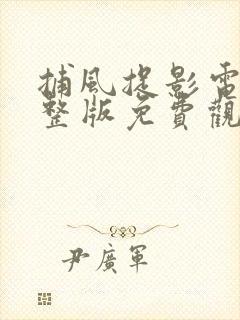 捕風捉影電
整版免費觀
尹廣軍